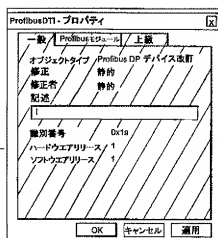 ProfibusDTI - プロパティ
一般 Profibusモジュール 上級
オブジェクトタイプ Profibus DP デバイス改訂
修正 静的
修正者 静的
記述
識別番号 0x1a
ハードウエアリリース 1
ソフトウエアリリース 1
OK キャンセル 適用